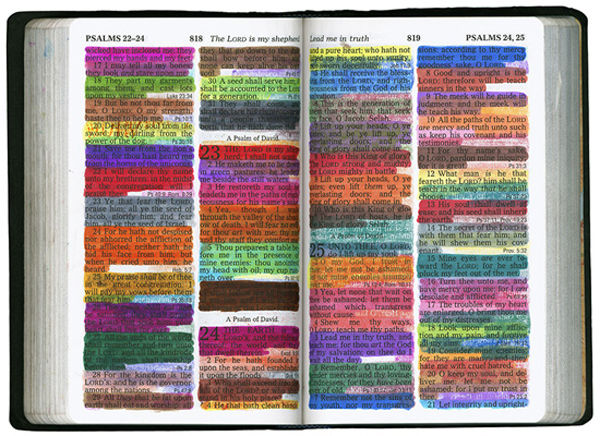 PSALMS 22–24 818 The LORD is my shepherd
wicked have inclosed me: they
pierced my hands and my feet
17 I may tell all my bones:
they look and stare upon me.
18 They part my garments
among them, and cast lots
upon my vesture. Luke 23:34
19 But be not thou far from
me, O LORD: O my strength,
haste thee to help me.
20 Deliver my soul from the
sword; my darling from the
power of the dog.
21 Save me from
mouth: for thou hast heard
from the horns of the unicorns.
22 I will declare thy name
unto my brethren: in the midst
of the congregation will I
praise thee.
23 Ye that fear the LORD,
praise him; all ye the seed of
Jacob, glorify him; and fear
him, all ye the seed of Israel.
24 For he hath not despised
nor abhorred the affliction of
the afflicted; neither hath he
hid his face from him; but
when he cried unto him, he
heard. Heb. 5:7
25 My praise shall be of thee
in the great congregation: I
will pay my vows before them
that fear him.
All the ends of the
28 For the kingdom is the
LORD'S: and he is the
among the nations.
29 All they that be fat upon
they that go down to the
shall bow before him:
none can keep alive
30 A seed shall serve him;
shall be accounted to the Lord
for a generation.
31 They shall come
shall declare
people
A Psalm of David.
23 THE LORD is my shep-
herd; I shall not
2 He maketh me to lie
in green pastures: he leadeth
me beside the still waters.
3 He restoreth my soul: he
leadeth me in the paths of
righteousness for his name's
4 Yea, though I walk
through the valley of the sha-
dow of death, I will fear no
evil: for thou art with me;
thy rod and thy staff they com-
fort me.
5 Thou preparest a table be-
fore me in the presence of
mine enemies: thou anointest
my head with oil; my cup run-
neth over.
A Psalm of David.
24 THE EARTH
LORD'S, and the fulness
thereof; the world, and they
that dwell therein.
2 For he hath founded it
upon the seas, and established
it upon the floods.
3 Who shall ascend into the
hill of the LORD? or who shall
stand in his holy place?
4 He that hath clean hands,
lead me in truth 819 PSALMS 24, 25
and a pure heart; who hath not
lifted up his soul unto vanity,
nor sworn deceitfully.
5 He shall receive the bless-
ing from the LORD, and right-
eousness from the God of his
salvation.
6 This is the generation of
them that seek him, that seek
thy face, O Jacob. Selah.
7 Lift up your heads, O ye
gates; and be ye lift up, ye
everlasting doors; and the
King of glory shall come in.
8 Who is this King of glory?
The LORD strong and mighty,
the LORD mighty in battle.
9 Lift up your heads, O ye
gates; even lift them up, ye
everlasting doors; and the
King of glory shall come in.
10 Who is this King of
25 UNTO THEE, O LORD,
do I lift up my soul.
let me not be ashamed,
let not mine enemies
3 Yea, let none that wait on
thee be ashamed: let them be
ashamed which transgress
without cause.
4 Shew me thy ways, O
LORD; teach me thy paths.
5 Lead me in thy truth, and
teach me: for thou art the God
of my salvation; on thee do I
wait all the day.
6 Remember, O LORD, thy
tender mercies and thy loving-
kindnesses; for they have been
ever of old.
7 Remember not the sins of
my youth, nor my transgres-
sions: according to thy mercy
remember thou me for thy
goodness' sake, O LORD.
8 Good and upright is the
LORD: therefore will he teach
sinners in the way.
9 The meek will he guide in
judgment: and the meek will
he teach his way.
10 All the paths of the LORD
are mercy and truth unto such
as keep his covenant and his
testimonies.
11 For thy name's sake, O
LORD, pardon mine iniquity;
for it is great.
12 What man is he that
feareth the LORD? him shall he
teach in the way that he shall
choose.
13 His soul shall dwell at
ease; and his seed shall inherit
the earth.
14 The secret of the LORD is
with them that fear him; and
he will shew them his cove-
nant. Prov. 3:32
15 Mine eyes are ever to-
ward the LORD; for he shall
pluck my feet out of the net.
16 Turn thee unto me, and
have mercy upon me; for I am
desolate and afflicted.
17 The troubles of my heart
are enlarged: O bring thou me
out of my distresses.
18 Look upon mine afflic-
tion and my pain; and forgive
all my sins.
19 Consider mine enemies;
for they are many; and they
hate me with cruel hatred.
20 O keep my soul, and de-
liver me: let me not be
ashamed; for I put my trust in
thee.
21 Let integrity and upright-